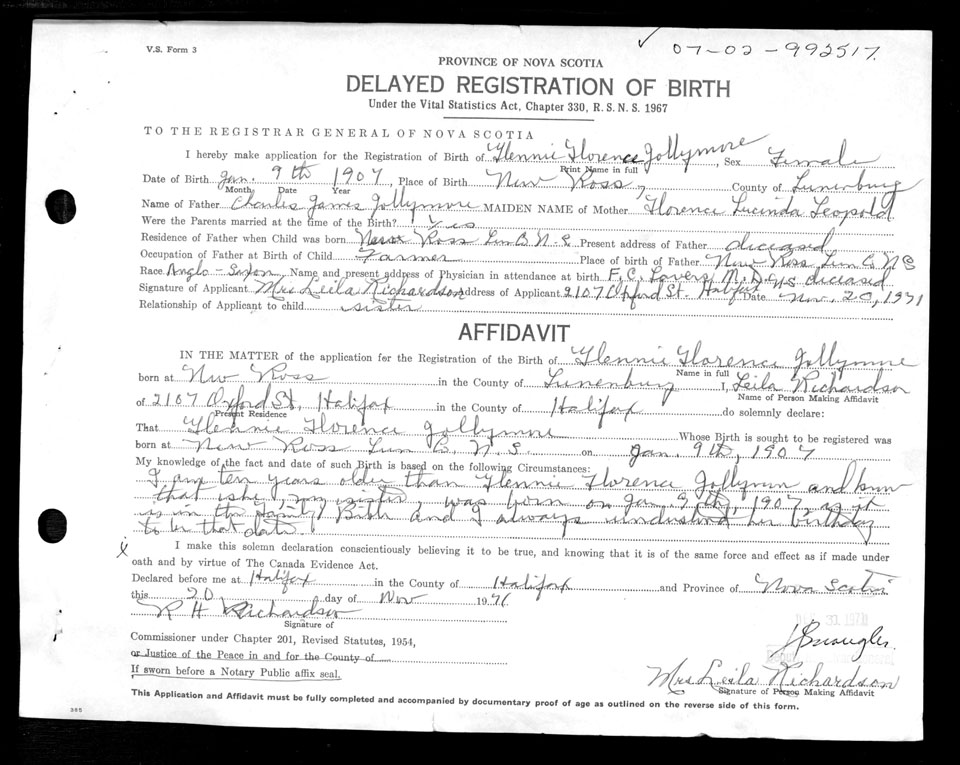 V.S. Form 3
✓ 07-02-992517.
PROVINCE OF NOVA SCOTIA
DELAYED REGISTRATION OF BIRTH
Under the Vital Statistics Act, Chapter 330, R.S.N.S. 1967
TO THE REGISTRAR GENERAL OF NOVA SCOTIA
I hereby make application for the Registration of Birth of Glennie Florence Jollymore, Sex Female
Print Name in full
Date of Birth Jan. 9th 1907, Place of Birth New Ross, County of Lunenburg
Month Date Year
Name of Father Charles James Jollymore MAIDEN NAME of Mother Florence Lucinda Leopold
Were the Parents married at the time of the Birth? Yes
Residence of Father when Child was born New Ross Lun Co N.S Present address of Father deceased
Occupation of Father at Birth of Child Farmer Place of birth of Father New Ross Lun Co NS
Race Anglo-Saxon Name and present address of Physician in attendance at birth F.C. Lavers M.D. NS deceased
Signature of Applicant Mrs Leila Richardson Address of Applicant 2107 Oxford St. Halifax Date Nov. 20, 1971
Relationship of Applicant to child sister
AFFIDAVIT
IN THE MATTER of the application for the Registration of the Birth of Glennie Florence Jollymore
Name in full
born at New Ross in the County of Lunenburg I, Leila Richardson
Name of Person Making Affidavit
of 2107 Oxford St, Halifax in the County of Halifax do solemnly declare:
Present Residence
That Glennie Florence Jollymore Whose Birth is sought to be registered was
born at New Ross Lun Co. N.S. on Jan. 9th, 1907
My knowledge of the fact and date of such Birth is based on the following Circumstances:
I am ten years older than Glennie Florence Jollymore and know
that she, my sister, was born on Jan 9th, 1907 as it
is in the family Bible and I always understood her birthday
to be that date.
x I make this solemn declaration conscientiously believing it to be true, and knowing that it is of the same force and effect as if made under
oath and by virtue of The Canada Evidence Act.
Declared before me at Halifax in the County of Halifax and Province of Nova Scotia
this 20 day of Nov 1971
R H Richardson
Signature of
Commissioner under Chapter 201, Revised Statutes, 1954,
or Justice of the Peace in and for the County of
If sworn before a Notary Public affix seal.
30 1971
Mrs Leila Richardson
Signature of Person Making Affidavit
This Application and Affidavit must be fully completed and accompanied by documentary proof of age as outlined on the reverse side of this form.
385